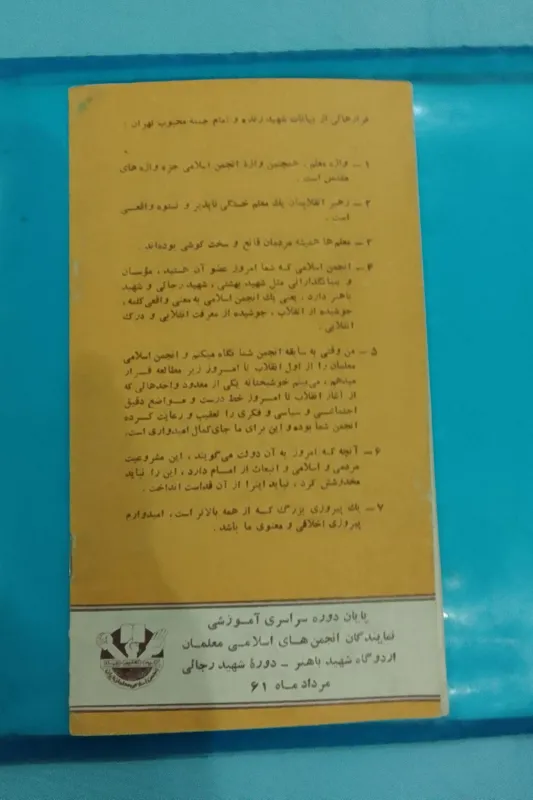 فرازهائی از بیانات شهید زنده و امام جمعه محبوب تهران :
۱ ــ واژه معلم ، همچنین واژهٔ انجمن اسلامی جزء واژه های
مقدس است .
۲ ــ رهبر انقلابمان یک معلم خستگی ناپذیر و نستوه واقعــی
است .
۳ ــ معلم ها همیشه مردمان قانع و سخت کوشی بوده‌اند
۴ ــ انجمن اسلامی که شما امروز عضو آن هستید ، مؤسسان
و بنیانگذارانی مثل شهید بهشتی ، شهید رجائی و شهید
باهنر دارد ، یعنی یک انجمن اسلامی به معنی واقعی کلمه ،
جوشیده از انقلاب ، جوشیده از معرفت انقلابی و درک
انقلابی .
۵ ــ من وقتی به سابقه انجمن شما نگاه میکنم و انجمن اسلامی
معلمان را از اول انقلاب تا امروز زیر مطالعه قرار
میدهم ، می‌بینم خوشبختانه یکی از معدود واحدهائی که
از آغاز انقلاب تا امروز خط درست و مــواضع دقیق
اجتماعــی و سیاسی و فکری را تعقیب و رعایت کــرده
انجمن شما بوده و این برای ما جای کمال امیدواری است.
۶ ــ آنچه که امروز به آن دولت می‌گویند ، این مشروعیت
مردمی و اسلامی و انبعاث از امــام دارد ، این را نباید
مخدوشش کرد ، نباید اینرا از آن قداست انداخت .
۷ ــ یک پیروزی بزرگ کــه از همه بالاتر است ، امیدوارم
پیروزی اخلاقی و معنوی ما باشد .
پایان دوره سراسری آمــوزشی
نمایندگان انجمن های اسلامــی معلمــان
اردوگاه شهید باهنــر ــ دورهٔ شهید رجائی
مرداد ماه ۶۱